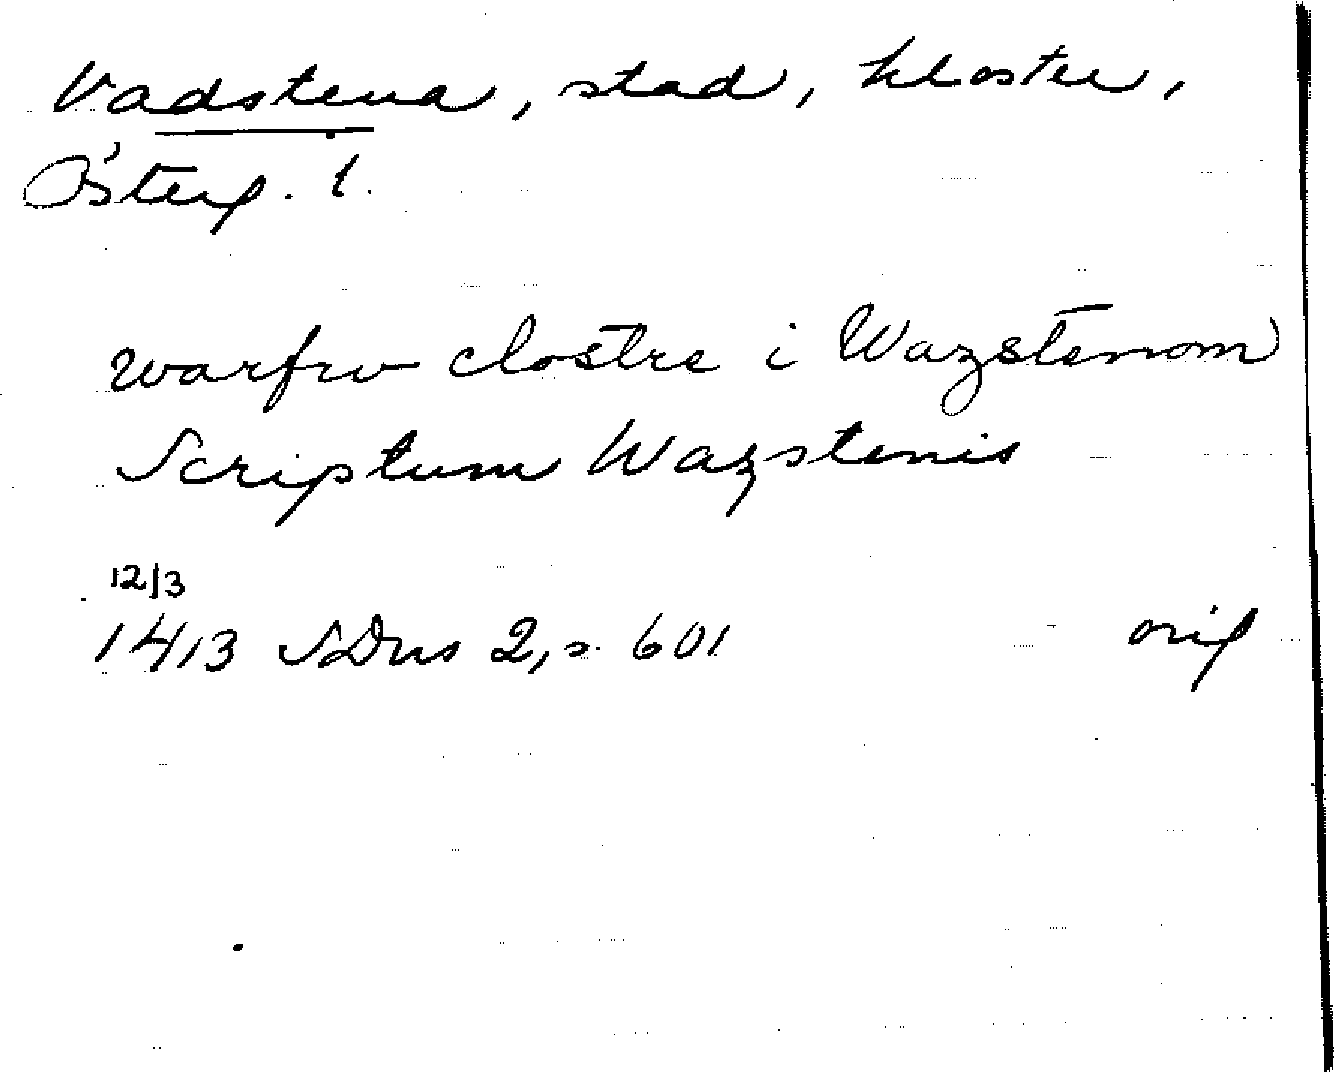 Vadstena, stad, kloster,
Österg. l.
warfrw clostre i Wazstenom
Scriptum Wazstenis
12/3
1413 SDns 2, s. 601 orig